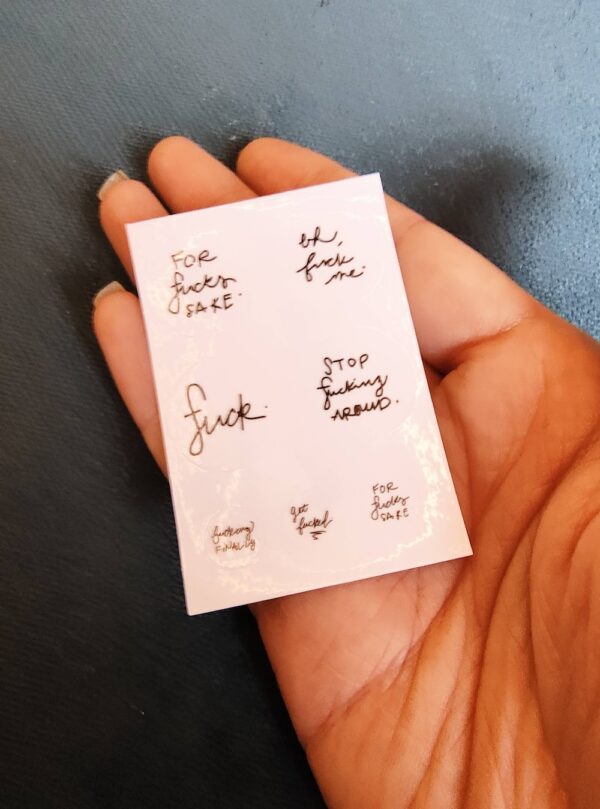 FOR
fucks
SAKE.
oh,
fuck
me.
fuck.
STOP
fucking
AROUND.
fucking
FINALLY
get
fucked
FOR
fucks
SAKE